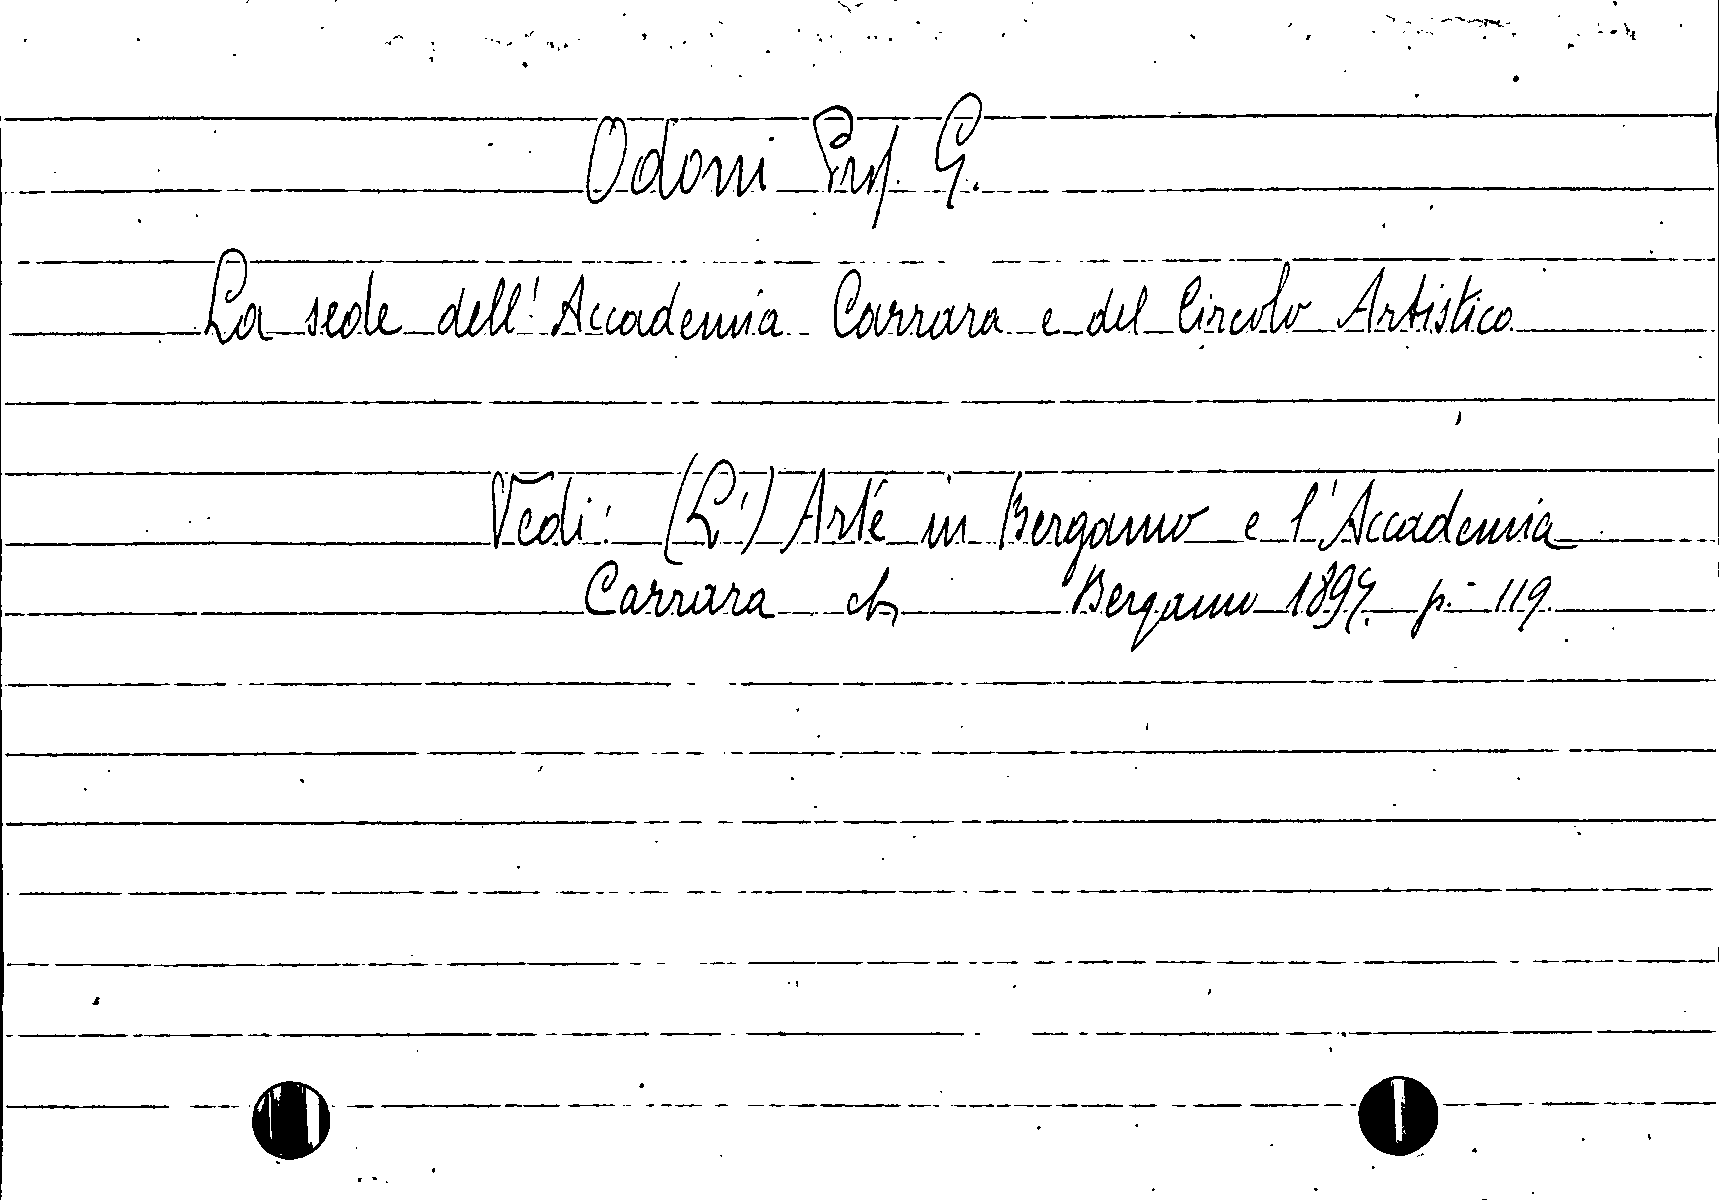 Odoni Prof. G.
La sede dell'Accademia Carrara e del Circolo Artistico
Vedi: (L') Arte in Bergamo e l'Accademia
Carrara Bergamo 1897. p. 119.